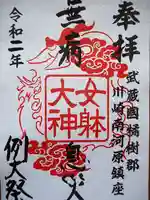 奉拝
武蔵國橘樹郡
川崎南河原鎮座
無病
息災
女躰
大神
令和二年
例大祭